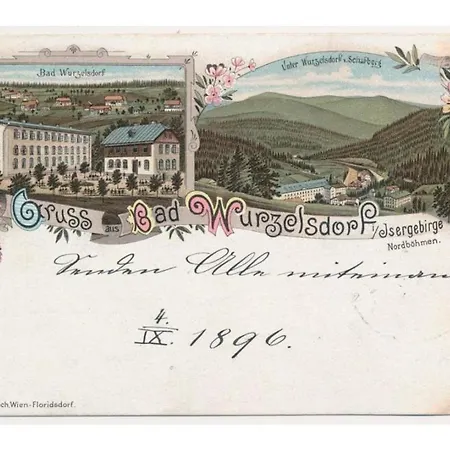 Bad Wurzelsdorf
Unter Wurzelsdorf v. Schutberg
Gruss aus Bad Wurzelsdorf i/Isergebirge
Nordböhmen.
Senden Alle miteinan
4.
IX. 1896.
ch, Wien-Floridsdorf.